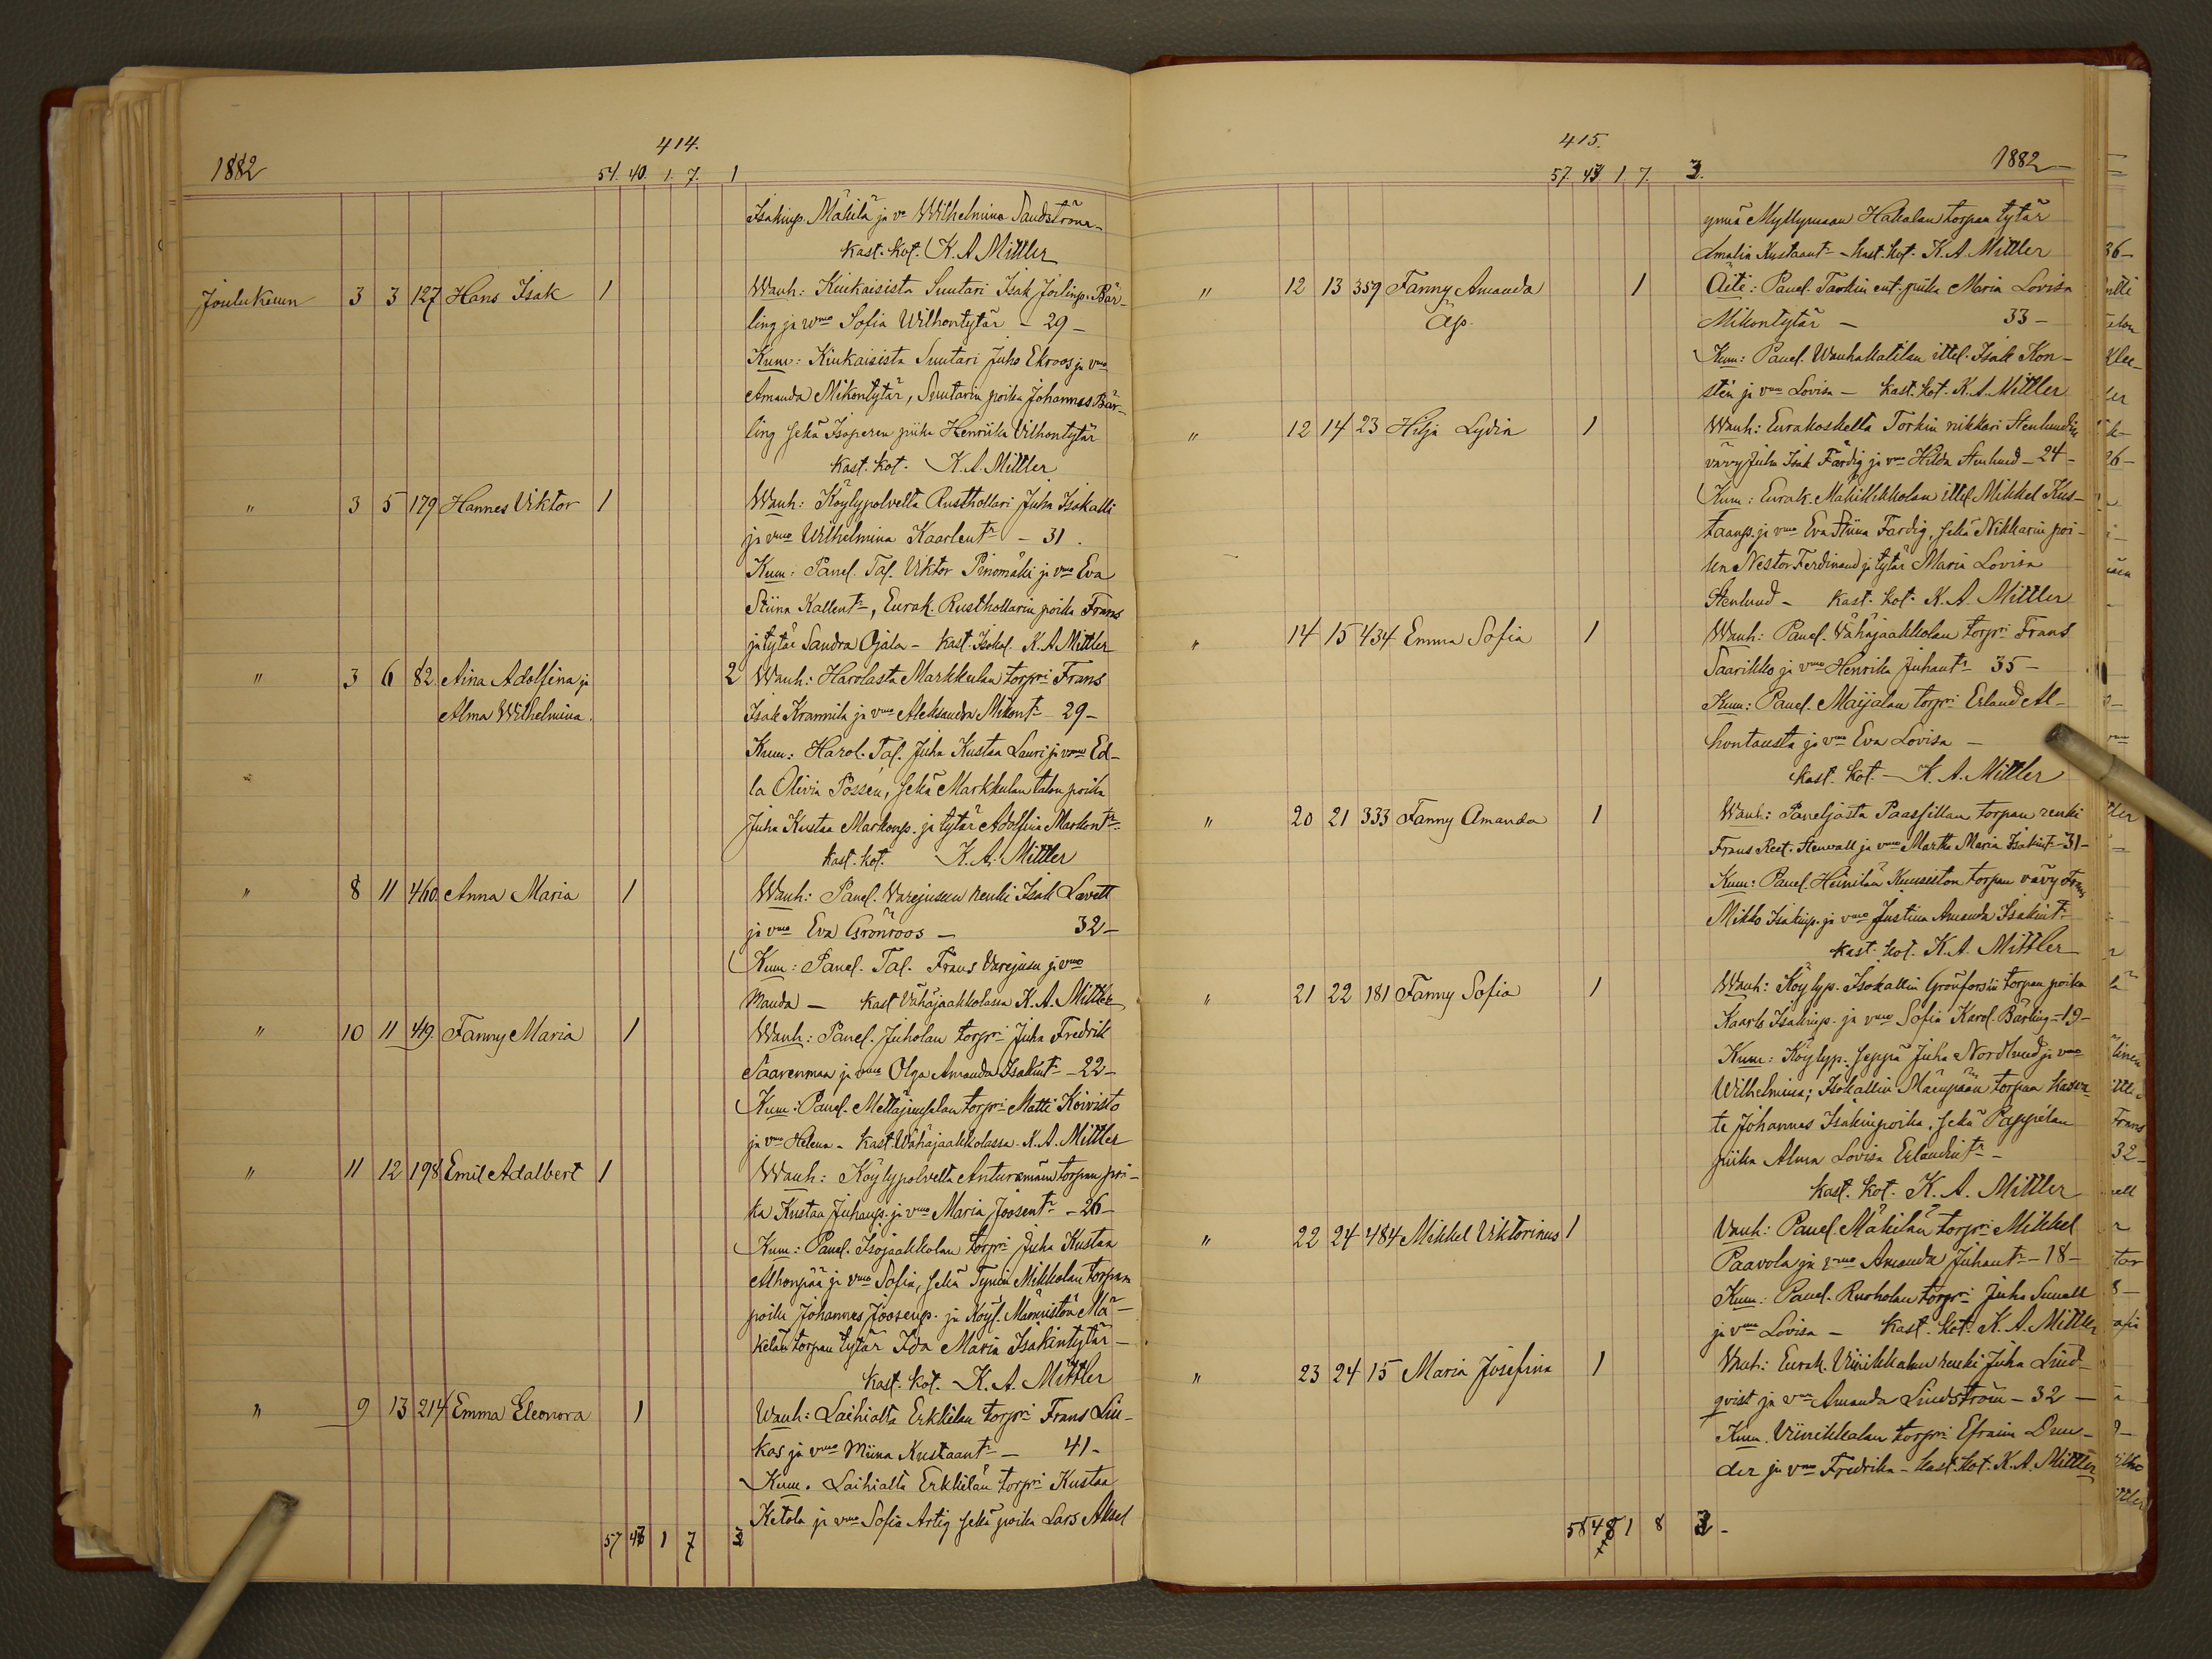 1882
414.
54. 40. 1. 7. 1
Isakinp. Mäkilä ja vo Wilhelmina Sandström
Kast. kot. K. A. Mittler
Joulukuun 3 3 127 Hans Isak 1 Wanh: Kiukaisista Suutari Isak Joelinp. Bär-
ling ja vmo Sofia Wilhontytär - 29 -
Kum: Kiukaisista Suutari Juho Ekroos ja vmo
Amanda Mikontytär, Suutarin poika Johannes Bär-
ling sekä Isoperen piika Henriika Vilhontytär
Kast. kot. K. A. Mittler
" 3 5 179 Hannes Viktor 1 Wanh: Köylypolvelta Rusthollari Juha Isokalli
ja vmo Wilhelmina Kaarlent. - 31.
Kum: Panel. Tal. Viktor Pinomäki ja vmo Eva
Stiina Kallent., Eurak. Rusthollarin poika Frans
ja tytär Sandra Ojala - Kast. Isokal. K. A. Mittler
" 3 6 82. Aina Adolfina ja 2 Wanh: Harolasta Markkulan torpri Frans
Alma Wilhelmina. Isak Krannila ja vmo Aleksandra Mikont. 29 -
Kum: Harol. Tal. Juha Kustaa Lauri ja vmo Ed-
la Olivia Possen, sekä Markkulan talon poika
Juha Kustaa Markunp. ja tytär Adolfina Markont.
Kast. kot. K. A. Mittler
" 8 11 460. Anna Maria 1 Wanh: Panel. Varejusun renki Isak Lavett
ja vmo Eva Grönroos - 32 -
Kum: Panel. Tal. Frans Varejusu ja vmo
Manda - Kast Vähäjaakkolassa K. A. Mittler
" 10 11 419. Fanny Maria 1 Wanh: Panel. Juholan torpri Juha Fredrik
Saarenmaa ja vmo Olga Amanda Isakint. - 22 -
Kum: Panel. torpri Matti Koivisto
ja vmo Helena - Kast. Wähäjaakkolassa. K. A. Mittler
" 11 12 198 Emil Adalbert 1 Wanh: Köylypolvelta torpan poi-
ka Kustaa Juhanp. ja vmo Maria Joosent. - 26 -
Kum: Panel. Isojaakkolan torpri Juha Kustaa
Alhonpää ja vmo Sofia, sekä Mikkolan torpan
poika Johannes Joosenp. ja Köyl. Männistön Mä-
kelän torpan tytär Ida Maria Isakintytär -
Kast. kot. K. A. Mittler
" 9 13 214 Emma Eleonora 1 Wanh: Laihialta Erkkilän torpri Frans Liu-
kas ja vmo Miina Kustaant. - 41 -
Kum. Laihialta Erkkilän torpri Kustaa
Ketola ja vmo Sofia Artig sekä poika Lars Aksel
57 43 1 7 3
415.
1882
57. 43 1. 7. 3.
ynnä Myllymaan Hakalan torpan tytär
Amalia Kustaant. - Kast. kot. K. A. Mittler
" 12 13 359 Fanny Amanda 1 Äiti: Panel. Tarkin ent. piika Maria Lovisa
Äp. Mikontytär - 33 -
Kum: Panel. Wanhakatilan ittel. Isak Kon-
stén ja vmo Lovisa - Kast. kot. K. A. Mittler
" 12 14 23 Hilja Lydia 1 Wanh: Eurakoskelta Torkin nikkari Stenlundin
vävy Juha Isak Färdig ja vmo Hilda Stenlund - 24 -
Kum: Eurak. ittel Mikkel Kus-
taanp. ja vmo Eva Stiina Färdig, sekä Nikkarin poi-
ka Nestor Ferdinand ja tytär Maria Lovisa
Stenlund - Kast. kot. K. A. Mittler
" 14 15 434 Emma Sofia 1 Wanh: Panel. Vähäjaakkolan torpri Frans
Saarikko ja vmo Henrika Juhant. 35 -
Kum: Panel. Maijalan torpri Erland Al-
hontausta ja vmo Eva Lovisa -
Kast. kot. - K. A. Mittler
" 20 21 333 Fanny Amanda 1 Wanh: Paneljasta Paassillan torpan renki
Frans Reet. Stenvall ja vmo Martta Maria Isakint. - 31 -
Kum: Panel. Heinilän Kuusiston torpan vävy Frans
Mikko Isakinp. ja vmo Justina Amanda Isakint.
Kast. kot. K. A. Mittler
" 21 22 181 Fanny Sofia 1 Wanh: Köylyp. Isokallin Grönforsin torpan poika
Kaarle Isakinp. ja vmo Sofia Karol. Bärling - 19 -
Kum: Köylyp. Seppä Juha Nordlund ja vmo
Wilhelmina; Isokallin torpan kasva-
te Johannes Isakinpoika, sekä Pappilan
piika Alma Lovisa Erlandint. -
Kast. kot. K. A. Mittler
" 22 24 484 Mikkel Viktorinus 1 Vanh: Panel. Mäkilän torpri Mikkel
Paavola ja vmo Amanda Juhant. - 18 -
Kum: Panel. Ruoholan torpri Juha Sunell
ja vmo Lovisa - Kast. kot. K. A. Mittler
" 23 24 15 Maria Josefina 1 Wanh: Eurak. Viinikkalan renki Juha Lind-
qvist ja vmo Amanda Lindström - 32 -
Kum. Viinikkalan torpri Efraim
ja vmo Fredrika - Kast. kot. K. A. Mittler
58 48 1 8 3 -